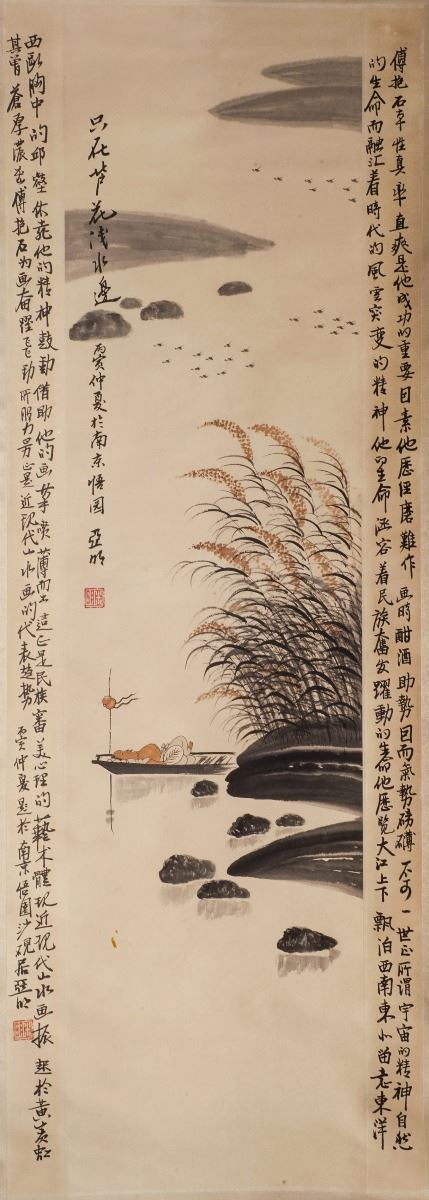 傅抱石本性真率直爽是他成功的重要因素他历经磨难作画时酣酒助势因而气势磅礴不可一世正所谓宇宙的精神自然
的生命而融汇着時代的風雲突变的精神他的生命涵容着民族奮发躍動的生命他历览大江上下飘泊西南東北留意東洋
只在芦花浅水邊
丙寅仲夏於南京悟园 亚明
西歐胸中的邱壑休克他的精神鼓動借助他的画笔喷薄而出這正是民族審美心理的藝术體现近现代山水画振起於黄宾虹
其曾蒼厚濃 傅抱石为画奋躍飞動所 力 正是近现代山水画的代表趋势 丙寅仲夏是於南京悟園沙砚居亚明